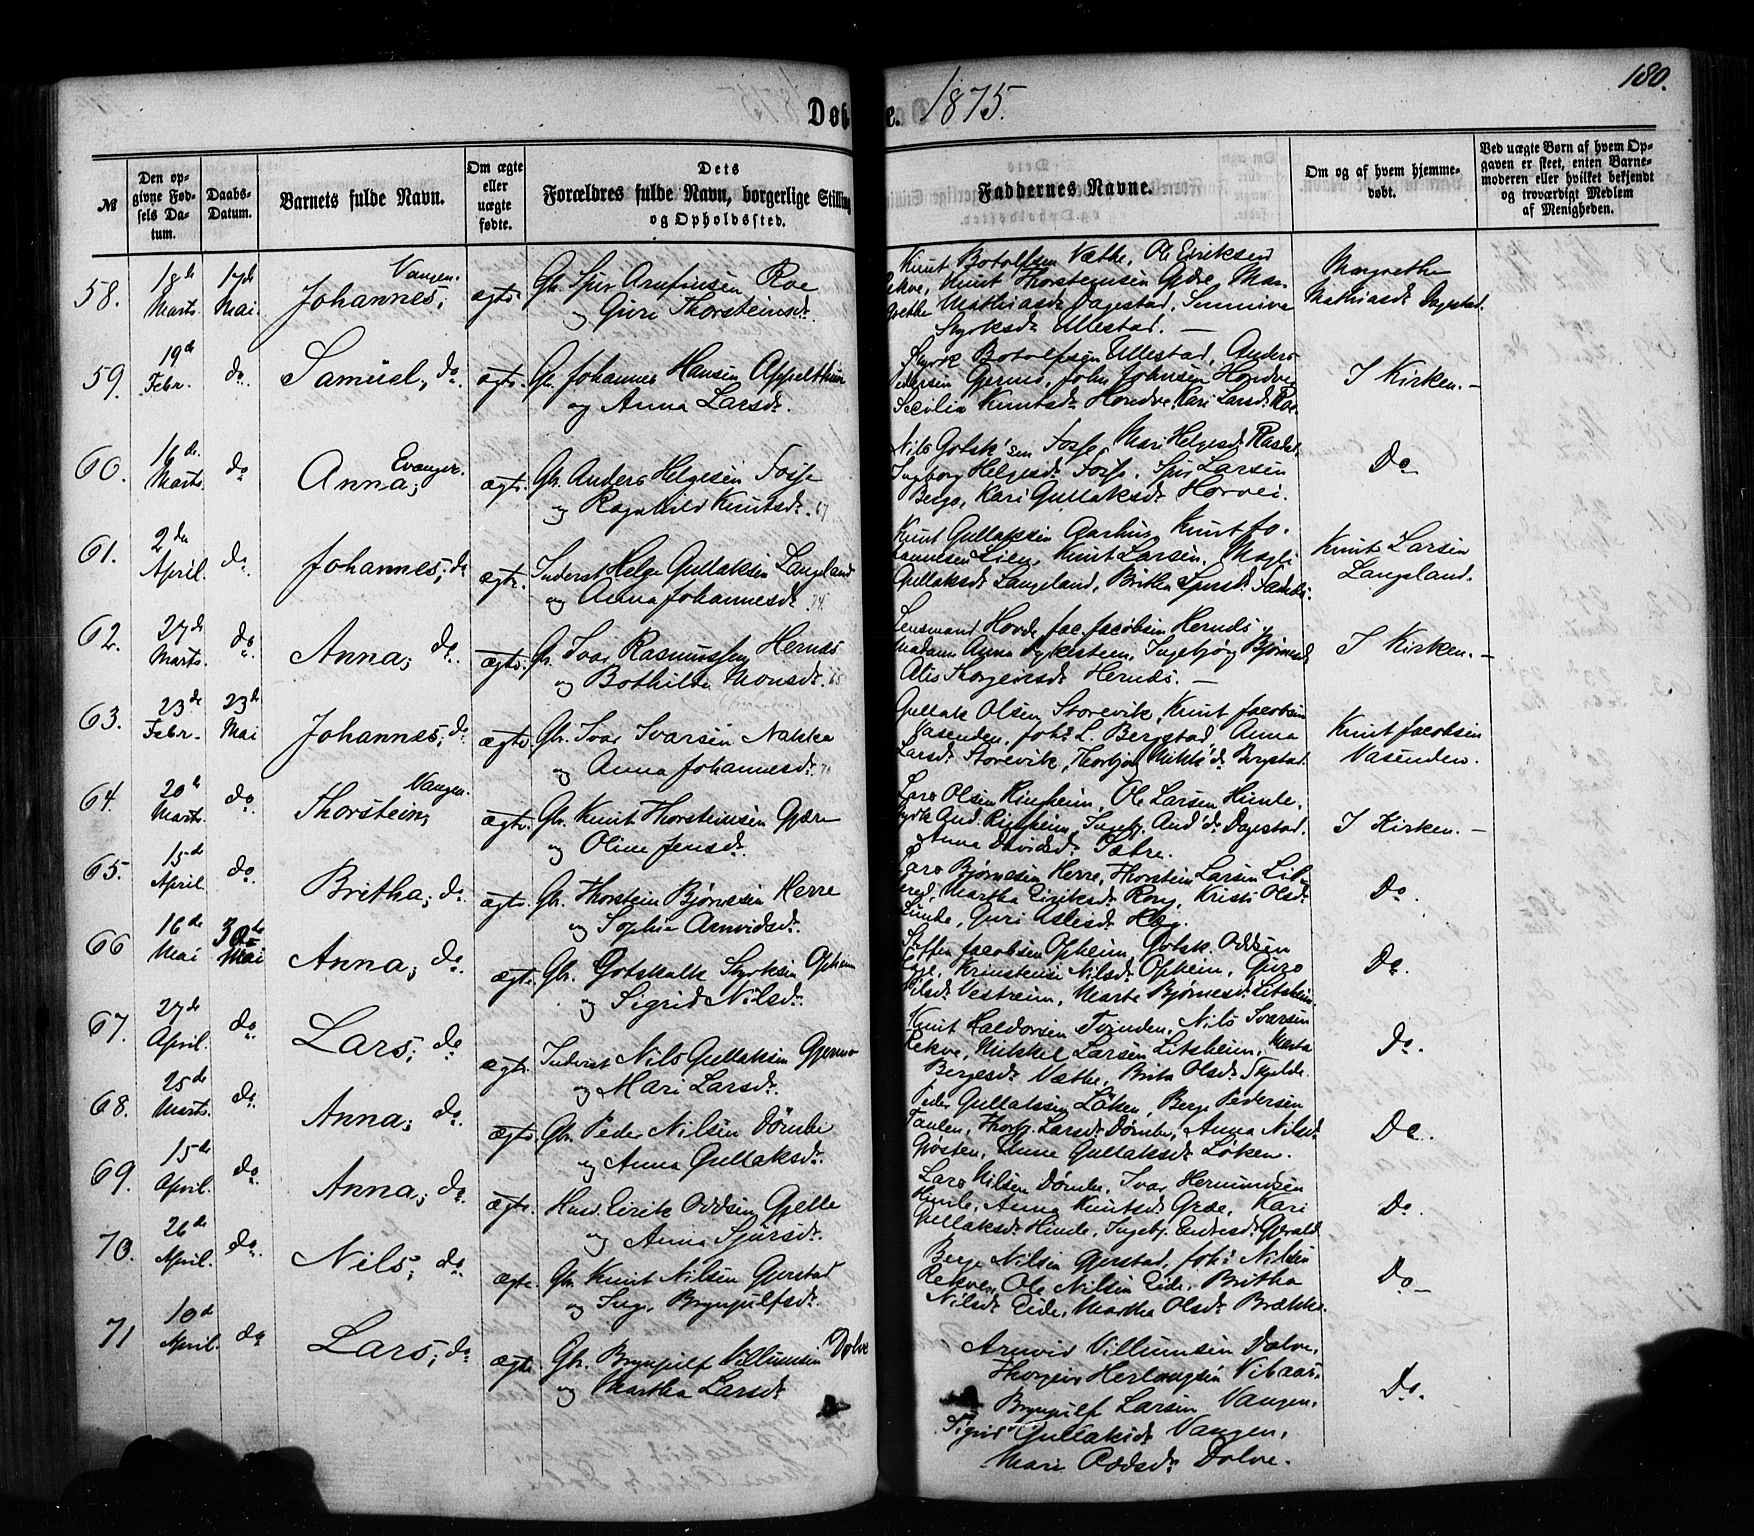 180.
Døbte. 1875.
№
Den opgivne Fødsels Datum.
Daabs-Datum.
Barnets fulde Navn.
Om ægte eller uægte fødte.
Dets Forældres fulde Navn, borgerlige Stilling og Opholdssted.
Faddernes Navne.
Om og af hvem hjemmedøbt.
Ved uægte Børn af hvem Opgaven er skeet, enten Barnemoderen eller hvilket bekjendt og troværdigt Medlem af Menigheden.
58.
18de Marts.
17de Mai.
Vangen.
Johannes;
ægte.
Gbr. Sjur Arnfinsen Roe
og Guri Thorsteinsdr.
Knut Botolfsen Væthe, Ole Eriksen
Rekve, Knut Thorsteinsen Gjære, Mar-
grethe Mathiasdr Dagestad, Sunniva
Styrksdr Ullestad.
Margrethe
Mathiasdr Dagestad.
59.
19de Febr.
do.
Samuel, do.
ægte.
Gbr. Johannes Hansen Appelthun
og Anna Larsdr.
Styrk Botolfsen Ullestad, Anders
Pedersen Gjerme, John Johnsen Hondve
Secilia Knutsdr Hondve, Kari Larsdr Roe
I Kirken.
60.
16de Marts.
do
Evanger.
Anna;
ægte.
Gbr. Anders Helgesen Fosse
og Ragnhild Knutsdr.
Nils Gotsk'sen Fosse, Mari Helgesdr
Ingeborg Helgesdr Fosse, Sjur Larsen
Berge, Kari Gullaksdr Horvei.
Do
61.
2den April.
do
Johannes; do
ægte.
Inderst Helge Gullaksen Langeland
og Anna Johannesdr.
Knut Gullaksen Aarhus, Knut Jo-
hannesen Lie, Knut Larsen, Magli
Gullaksdr Langeland, Britha Sjursdr
Knut Larsen
Langeland.
62.
27de Marts.
do
Anna; do.
ægte.
Gbr. Ivar Rasmussen Hernæs
og Bothilde Monsdr.
Lensmand Hovde, Jac. Jacobsen Hernæs
Madam Anna Dykesteen, Ingebjør Bjørnesdr
Atis Thorgeirsdr Hernæs.
I Kirken.
63.
23de Febr.
23de Mai
Johannes; do
ægte
Gbr. Ivar Ivarsen Nakka
og Anna Johannesdr.
Gullak Olsen Storevik, Knut Jacobsen
Vasenden, Johs. L. Bergstad, Anna
Larsdr Storevik, Thorbjør Bergstad.
Knut Jacobsen
Vasenden.
64.
20de Marts.
do.
Vangen.
Thorstein;
ægte.
Gbr. Knut Thorsteinsen Gjære
og Oline Jensdr.
Lars Olsen Ringheim, Ole Larsen Himle,
And. Ringheim, Ingebj. And'dr Dagestad.
Anna Davidsdr Sætre.
I Kirken.
65.
15de April.
do.
Britha; do
ægte.
Gbr. Thorstein Bjørnesen Herre
og Sophie Arnvidsdr.
Lars Bjørnesen Herre, Thorstein Larsen
Martha Eiriksdr Rong, Kristi Olsdr
Guri Aslesdr
Do.
66
16de Mai
30te Mai
Anna; do.
ægte.
Gbr. Gotskalk Styrksen Opheim
og Sigrid Nilsdr.
Steffen Jacobsen Opheim, Gotsk. Oddsen
Nilsdr Opheim, Guro
Nilsdr Vestreim, Marte Bjørnesdr Litsheim.
Do.
67.
27de April.
do.
Lars; do.
ægte.
Inderst Nils Gullaksen Gjerme
og Mari Larsdr.
Knut Haldorsen Tvinden, Nils Ivarsen
Rekve, Mikkel Larsen Litsheim, Marta
Bergesdr Væthe, Brita Olsdr Skjelde.
Do.
68.
25de Marts.
do.
Anna; do.
ægte.
Gbr. Peder Nilsen Dömbe
og Anna Gullaksdr.
Peder Gullaksen Löken, Berge Pedersen
Taulen, Thorbj. Larsdr Dömbe, Anna Nilsdr
Gjøsten, Anne Gullaksdr Löken.
Do.
69.
15de April.
do.
Anna; do.
ægte.
Husm. Eirik Oddsen Gjelle
og Anna Sjursdr.
Lars Nilsen Dömbe, Ivar Hermundsen
Himle, Anna Knutsdr Græe, Kari
Gullaksdr Himle, Ingebj. Endresdr Gjerald
Do.
70.
26de April.
do.
Nils; do.
ægte.
Gbr. Knut Nilsen Gjerstad
og Inge. Brynjulfsdr.
Berge Nilsen Gjerstad, Johs Nilsen
Rekve, Ole Nilsen Eide, Britha
Nilsdr Eide, Martha Olsdr Brække.
Do.
71
10de April.
do
Lars; do.
ægte.
Gbr. Brynjulf Villumsen Dolve
og Martha Larsdr
Arnvid Villumsen Dolve,
Thorgeir Herlaugsen Nibaas,
Brynjulf Larsen Vangen,
Sigrid Gullaksdr Vangen,
Mari Oddsdr Dolve.
Do.